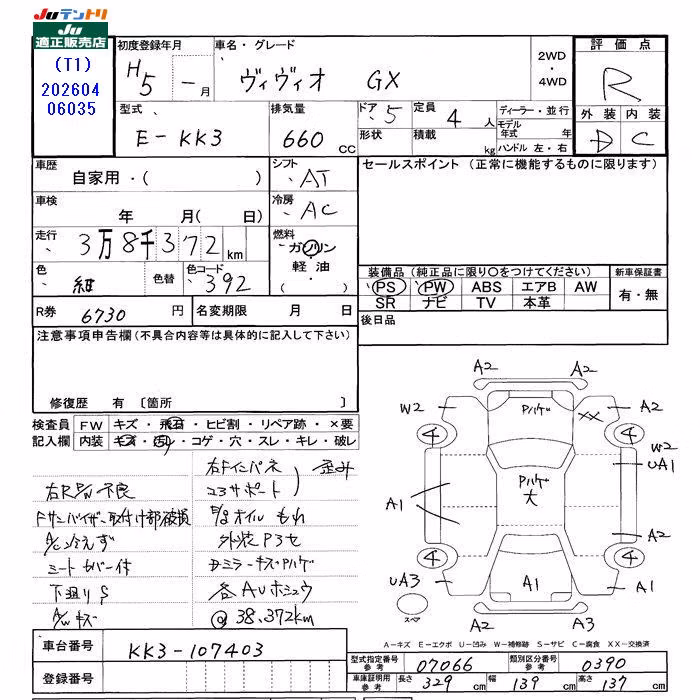 Juテントリ
Ju
適正販売店
(T1)
202604
06035
初度登録年月
H5 - 月
車名・グレード
ヴィヴィオ GX
2WD
・
4WD
評価点
R
型式
E-KK3
排気量
660 cc
ドア 5
形状
定員 4 人
積載 kg
ディーラー・並行
モデル年式 年
ハンドル 左・右
外装 内装
D C
車歴
自家用・( )
シフト
AT
セールスポイント (正常に機能するものに限ります)
車検
年 月( 日)
冷房
AC
走行
3万8千372 km
燃料
ガソリン
軽油
・( )
色
紺
色替
色コード
392
装備品 (純正品に限り○をつけてください)
PS PW ABS エアB AW
SR ナビ TV 本革
新車保証書
有・無
R券 6730 円
名変期限 月 日
後日品
注意事項申告欄(不具合内容等は具体的に記入して下さい)
修復歴 有 〔箇所 〕
検査員 FW キズ・飛石・ヒビ割・リペア跡・×要
記入欄 内装 キズ・汚レ・コゲ・穴・スレ・キレ・破レ
右Fインパネ
コアサポート
歪み
右R P/W 不良
Fサンバイザー取付け部破損
A/C冷えず
シートカバー付
下廻りS
A/Wキズ
E/gオイルもれ
外装P3セ
Dミラーキズ・Pハゲ
各AUホシュウ
@38,372km
A2
A2
W2
A2
Pハゲ
XX
4
4
W2
UA1
A1
Pハゲ
大
A2
4
4
UA3
A1
A1
A2
A3
スペア
A-キズ E-エクボ U-凹み W-補修跡 S-サビ C-腐食 XX-交換済
車台番号 KK3-107403
登録番号
型式指定番号 参考 07066
類別区分番号 参考 0390
車庫証明用 参考 長さ 329 cm 幅 139 cm 高さ 137 cm